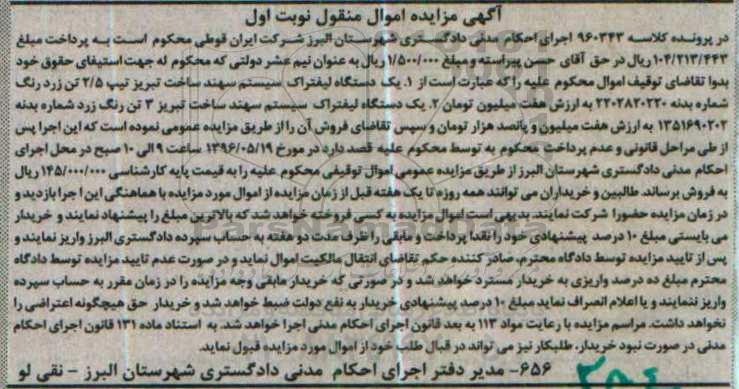 آگهی مزایده اموال منقول نوبت اول
در پرونده کلاسه ۹۶۰۳۴۳ اجرای احکام مدنی دادگستری شهرستان البرز شرکت ایران قوطی محکوم است به پرداخت مبلغ
۱۰۴/۲۱۳/۴۴۳ ریال در حق آقای حسن پیراسته و مبلغ ۱/۵۰۰/۰۰۰ ریال به عنوان نیم عشر دولتی که محکوم له جهت استیفای حقوق خود
بدوا تقاضای توقیف اموال محکوم علیه را که عبارت است از ۱. یک دستگاه لیفتراک سیستم سهند ساخت تبریز تیپ ۲/۵ تن زرد رنگ
شماره بدنه ۲۲۰۲۸۲۰۲۲۰ به ارزش هفت میلیون تومان ۲. یک دستگاه لیفتراک سیستم سهند ساخت تبریز ۳ تن رنگ زرد شماره بدنه
۱۳۵۱۶۹۰۲۰۲ به ارزش هفت میلیون و پانصد هزار تومان و سپس تقاضای فروش آن را از طریق مزایده عمومی نموده است که این اجرا پس
از طی مراحل قانونی و عدم پرداخت محکوم به توسط محکوم علیه قصد دارد در مورخ ۱۳۹۶/۰۵/۱۹ ساعت ۹ الی ۱۰ صبح در محل اجرای
احکام مدنی دادگستری شهرستان البرز از طریق مزایده عمومی اموال توقیفی محکوم علیه را به قیمت پایه کارشناسی ۱۴۵/۰۰۰/۰۰۰ ریال
به فروش برساند. طالبین و خریداران می توانند همه روزه تا یک هفته قبل از زمان مزایده از اموال مورد مزایده با هماهنگی این اجرا بازدید و
در زمان مزایده حضورا شرکت نمایند. بدیهی است اموال مزایده به کسی فروخته خواهد شد که بالاترین مبلغ را پیشنهاد نمایند و خریدار
می بایستی مبلغ ۱۰ درصد پیشنهادی خود را نقدا پرداخت و مابقی را ظرف مدت دو هفته به حساب سپرده دادگستری البرز واریز نمایند و
پس از تایید مزایده توسط دادگاه محترم، صادر کننده حکم تقاضای انتقال مالکیت اموال نماید و در صورت عدم تایید مزایده توسط دادگاه
محترم مبلغ ده درصد واریزی به خریدار مسترد خواهد شد و در صورتی که خریدار مابقی وجه مزایده را در زمان مقرر به حساب سپرده
واریز ننمایند و یا اعلام انصراف نماید مبلغ ۱۰ درصد پیشنهادی خریدار به نفع دولت ضبط خواهد شد و خریدار حق هیچگونه اعتراضی را
نخواهد داشت. مراسم مزایده با رعایت مواد ۱۱۳ به بعد قانون اجرای احکام مدنی اجرا خواهد شد. به استناد ماده ۱۳۱ قانون اجرای احکام
مدنی در صورت نبود خریدار، طلبکار نیز می تواند در قبال طلب خود از اموال مورد مزایده قبول نماید.
۶۵۶- مدیر دفتر اجرای احکام مدنی دادگستری شهرستان البرز - نقی لو